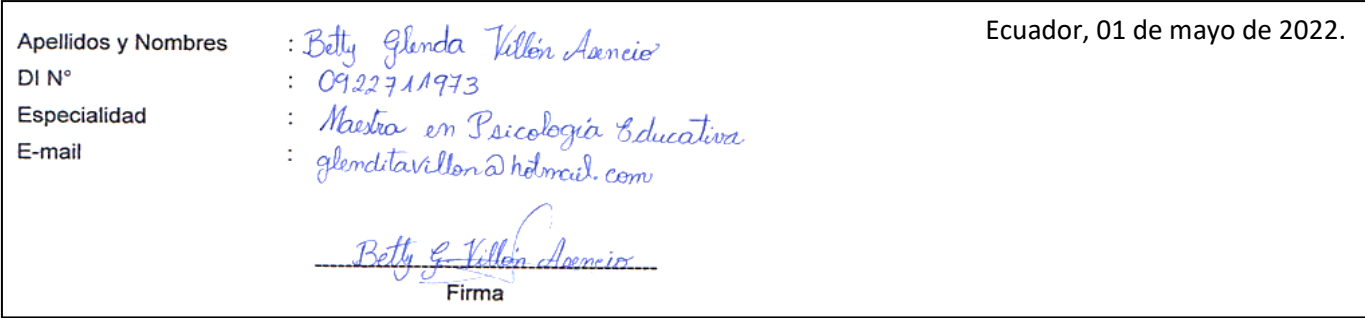 Ecuador, 01 de mayo de 2022.
Apellidos y Nombres : Betty Glenda Villón Asencio
DI N° : 0922711973
Especialidad : Maestra en Psicología Educativa
E-mail : glenditavillon@hotmail.com
Betty G. Villón Asencio
Firma